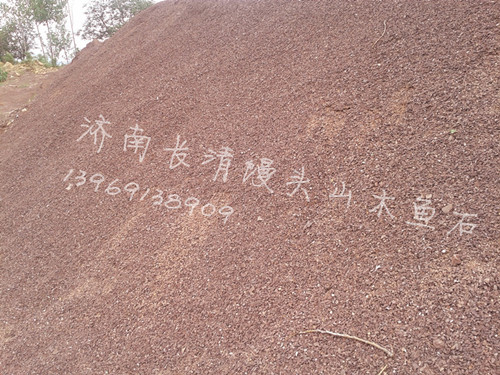 济南长清馒头山木鱼石
13969138909